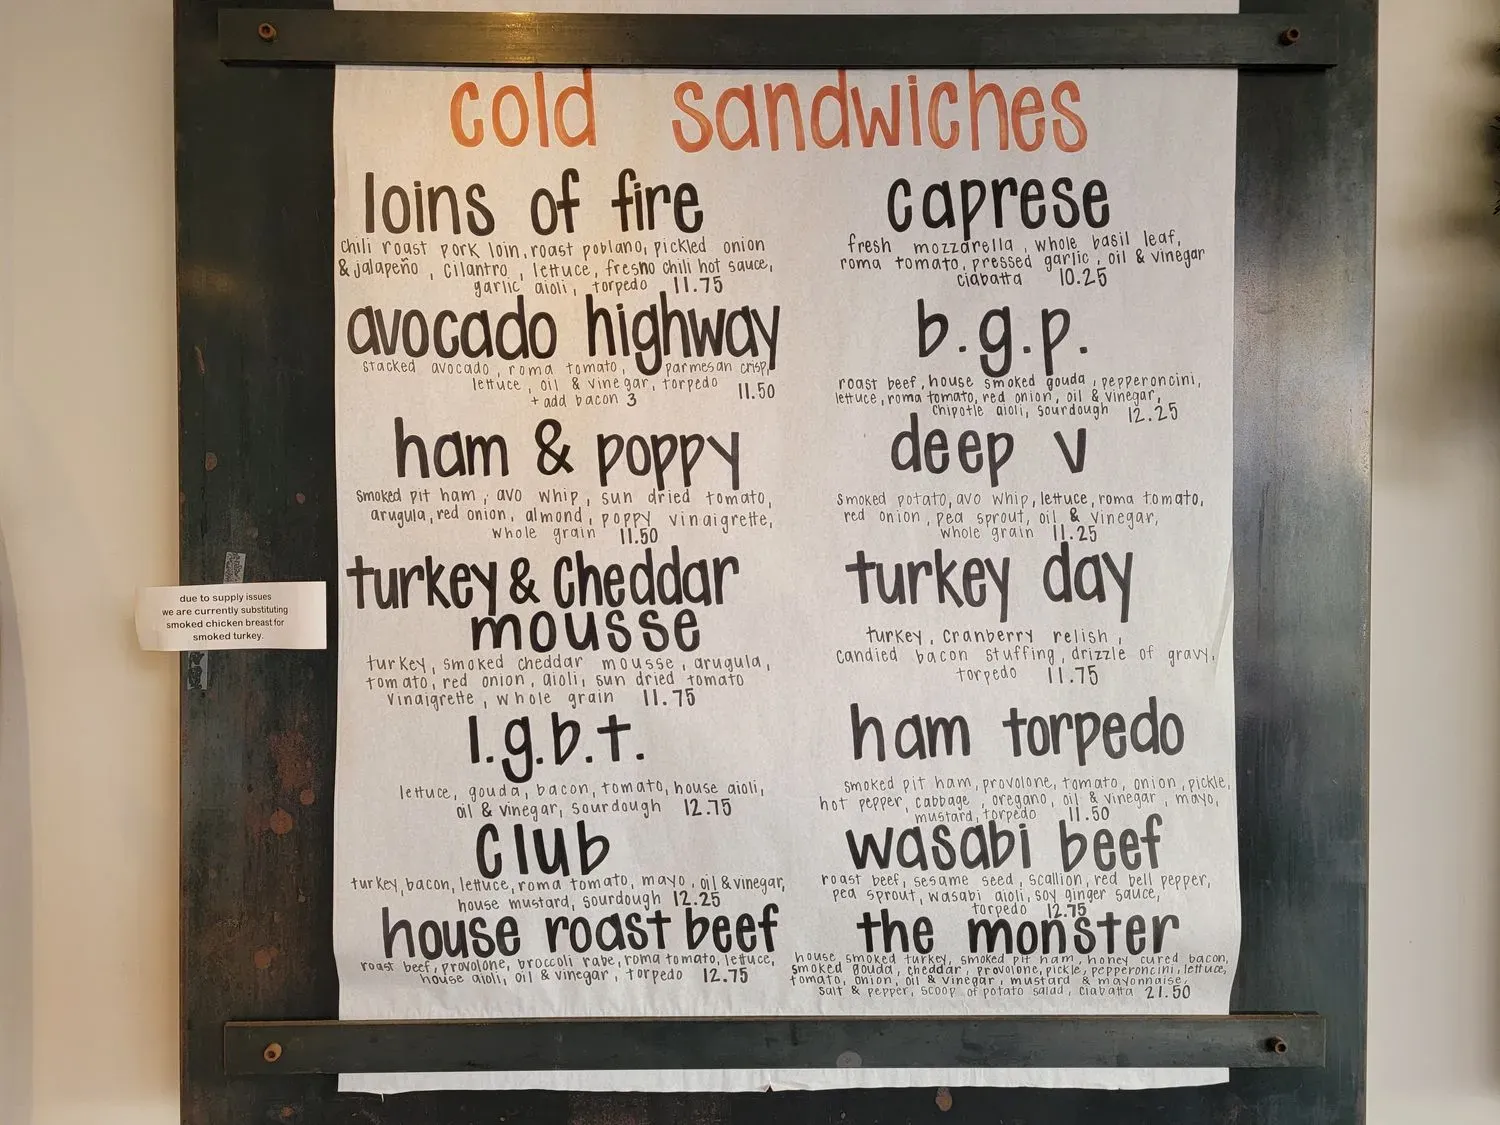 cold sandwiches
loins of fire
chili roast pork loin, roast poblano, pickled onion
& jalapeño, cilantro, lettuce, fresno chili hot sauce,
garlic aioli, torpedo 11.75
avocado highway
stacked avocado, roma tomato, parmesan crisp,
lettuce, oil & vinegar, torpedo 11.50
+ add bacon 3
ham & poppy
smoked pit ham, avo whip, sun dried tomato,
arugula, red onion, almond, poppy vinaigrette,
whole grain 11.50
turkey & cheddar
mousse
turkey, smoked cheddar mousse, arugula,
tomato, red onion, aioli, sun dried tomato
vinaigrette, whole grain 11.75
l.g.b.t.
lettuce, gouda, bacon, tomato, house aioli,
oil & vinegar, sourdough 12.75
club
turkey, bacon, lettuce, roma tomato, mayo, oil & vinegar,
house mustard, sourdough 12.25
house roast beef
roast beef, provolone, broccoli rabe, roma tomato, lettuce,
house aioli, oil & vinegar, torpedo 12.75
caprese
fresh mozzarella, whole basil leaf,
roma tomato, pressed garlic, oil & vinegar
ciabatta 10.25
b.g.p.
roast beef, house smoked gouda, pepperoncini,
lettuce, roma tomato, red onion, oil & vinegar,
chipotle aioli, sourdough 12.25
deep v
smoked potato, avo whip, lettuce, roma tomato,
red onion, pea sprout, oil & vinegar,
whole grain 11.25
turkey day
turkey, cranberry relish,
candied bacon stuffing, drizzle of gravy,
torpedo 11.75
ham torpedo
smoked pit ham, provolone, tomato, onion, pickle,
hot pepper, cabbage, oregano, oil & vinegar, mayo,
mustard, torpedo 11.50
wasabi beef
roast beef, sesame seed, scallion, red bell pepper,
pea sprout, wasabi aioli, soy ginger sauce,
torpedo 12.75
the monster
house smoked turkey, smoked pit ham, honey cured bacon,
smoked gouda, cheddar, provolone, pickle, pepperoncini, lettuce,
tomato, onion, oil & vinegar, mustard & mayonnaise,
salt & pepper, scoop of potato salad, ciabatta 21.50
due to supply issues
we are currently substituting
smoked chicken breast for
smoked turkey.